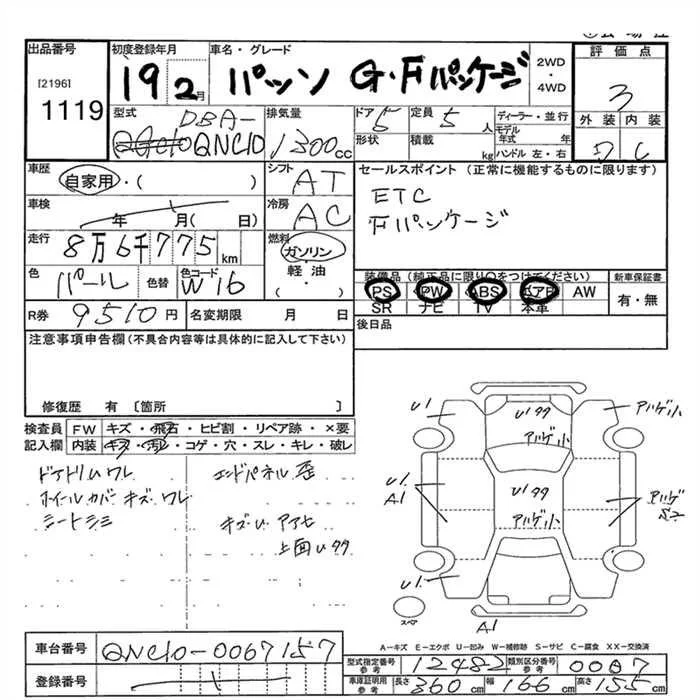 出品番号
[2196]
1119
初度登録年月
19 2月
車名・グレード
パッソ G・Fパッケージ
2WD
・
4WD
評価点
3
外装 内装
ワ C
型式
DBA-
QNC10
排気量
1300cc
ドア 5
形状
定員 5人
積載 kg
ディーラー・並行
モデル年式 年
ハンドル 左・右
車歴
自家用・( )
シフト
AT
セールスポイント (正常に機能するものに限ります)
ETC
Fパッケージ
車検
年 月( 日)
冷房
AC
走行
8万6千775km
燃料
ガソリン
・
軽油
・( )
色
パール
色替
色コード
W16
装備品(純正品に限り○をつけてください)
PS PW ABS エアB AW
SR ナビ TV 本革
新車保証書
有・無
R券
9510円
名変期限 月 日
後日品
注意事項申告欄(不具合内容等は具体的に記入して下さい)
修復歴 有〔箇所 〕
検査員
記入欄
FW キズ・飛石・ヒビ割・リペア跡・×要
内装 キズ・汚れ・コゲ・穴・スレ・キレ・破レ
ドアトリムワレ
ホイールカバー キズ ワレ
シートシミ
エンドパネル歪
キズU アマセ
上面Uタタ
U1
Uタタ
アバゲ小
アバゲ小
U1
A1
Uタタ
アバゲ小
アバゲ
S2
U1
スペア
A1
A-キズ E-エクボ U-凹み W-補修跡 S-サビ C-腐食 XX-交換済
車台番号
QNC10-0067157
登録番号
型式指定番号
参考
12482
類別区分番号
参考
0007
車庫証明用
参考
長さ 360cm 幅 166cm 高さ 155cm